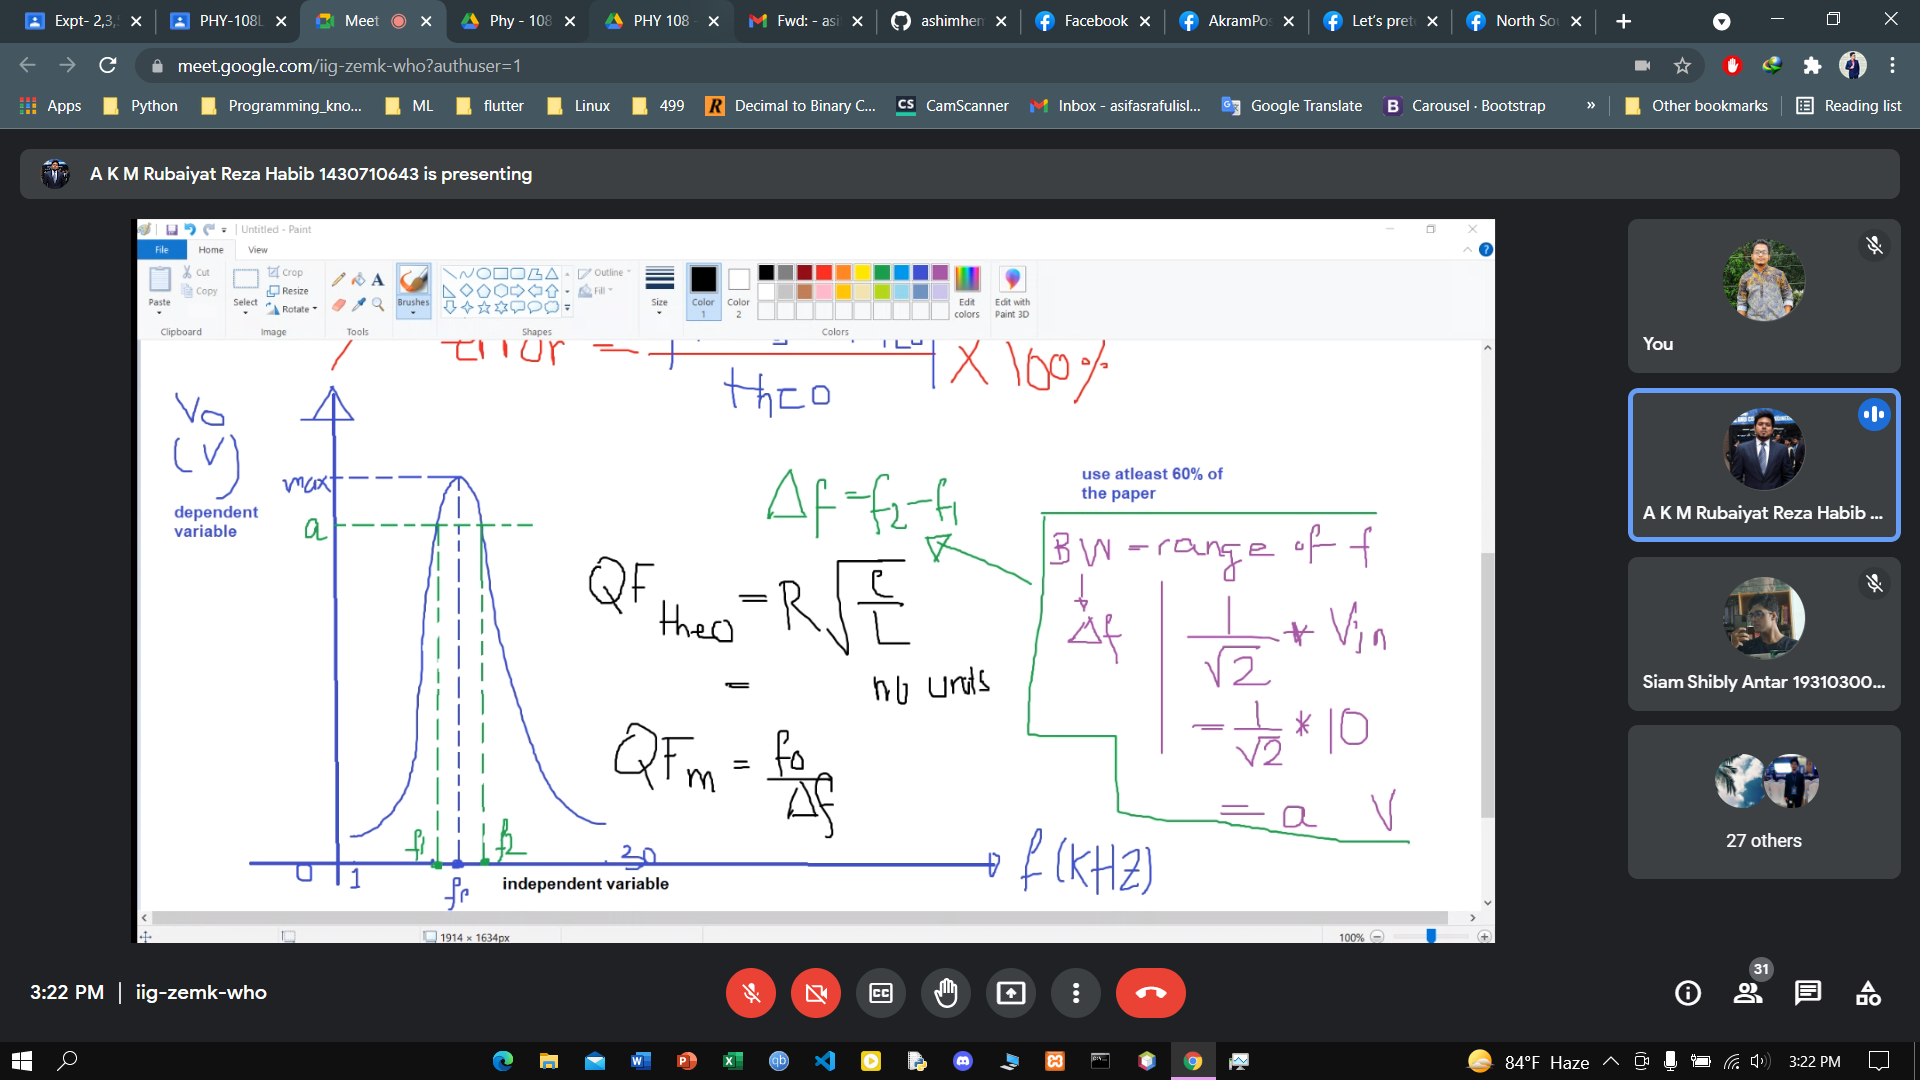 Expt- 2,3,
PHY-108L
Meet
Phy - 108
PHY 108 -
M Fwd: - asi
ashimhem
Facebook
AkramPos
Let's pret
North Sou
meet.google.com/iig-zemk-who?authuser=1
Apps
Python
Programming_kno...
ML
flutter
Linux
499
Decimal to Binary C...
CS CamScanner
Inbox - asifasrafulisl...
Google Translate
B Carousel · Bootstrap
»
Other bookmarks
Reading list
A K M Rubaiyat Reza Habib 1430710643 is presenting
Untitled - Paint
File Home View
Paste
Cut
Copy
Clipboard
Select
Crop
Resize
Rotate
Image
A
Tools
Brushes
Outline
Fill
Shapes
Size
Color 1
Color 2
Edit colors
Edit with Paint 3D
Colors
Error =
theo
X 100%
Vo
(V)
dependent
variable
max
a
0
1
f1
f2
fr
30
independent variable
f (KHZ)
Δf = f2 - f1
QF theo = R√C/L
= no units
QFm = f0/Δf
use atleast 60% of
the paper
BW - range of f
Δf
1/√2 * Vin
= 1/√2 * 10
= a V
1914 × 1634px
100%
You
A K M Rubaiyat Reza Habib ...
Siam Shibly Antar 19310300...
27 others
3:22 PM | iig-zemk-who
CC
31
84°F Haze
3:22 PM